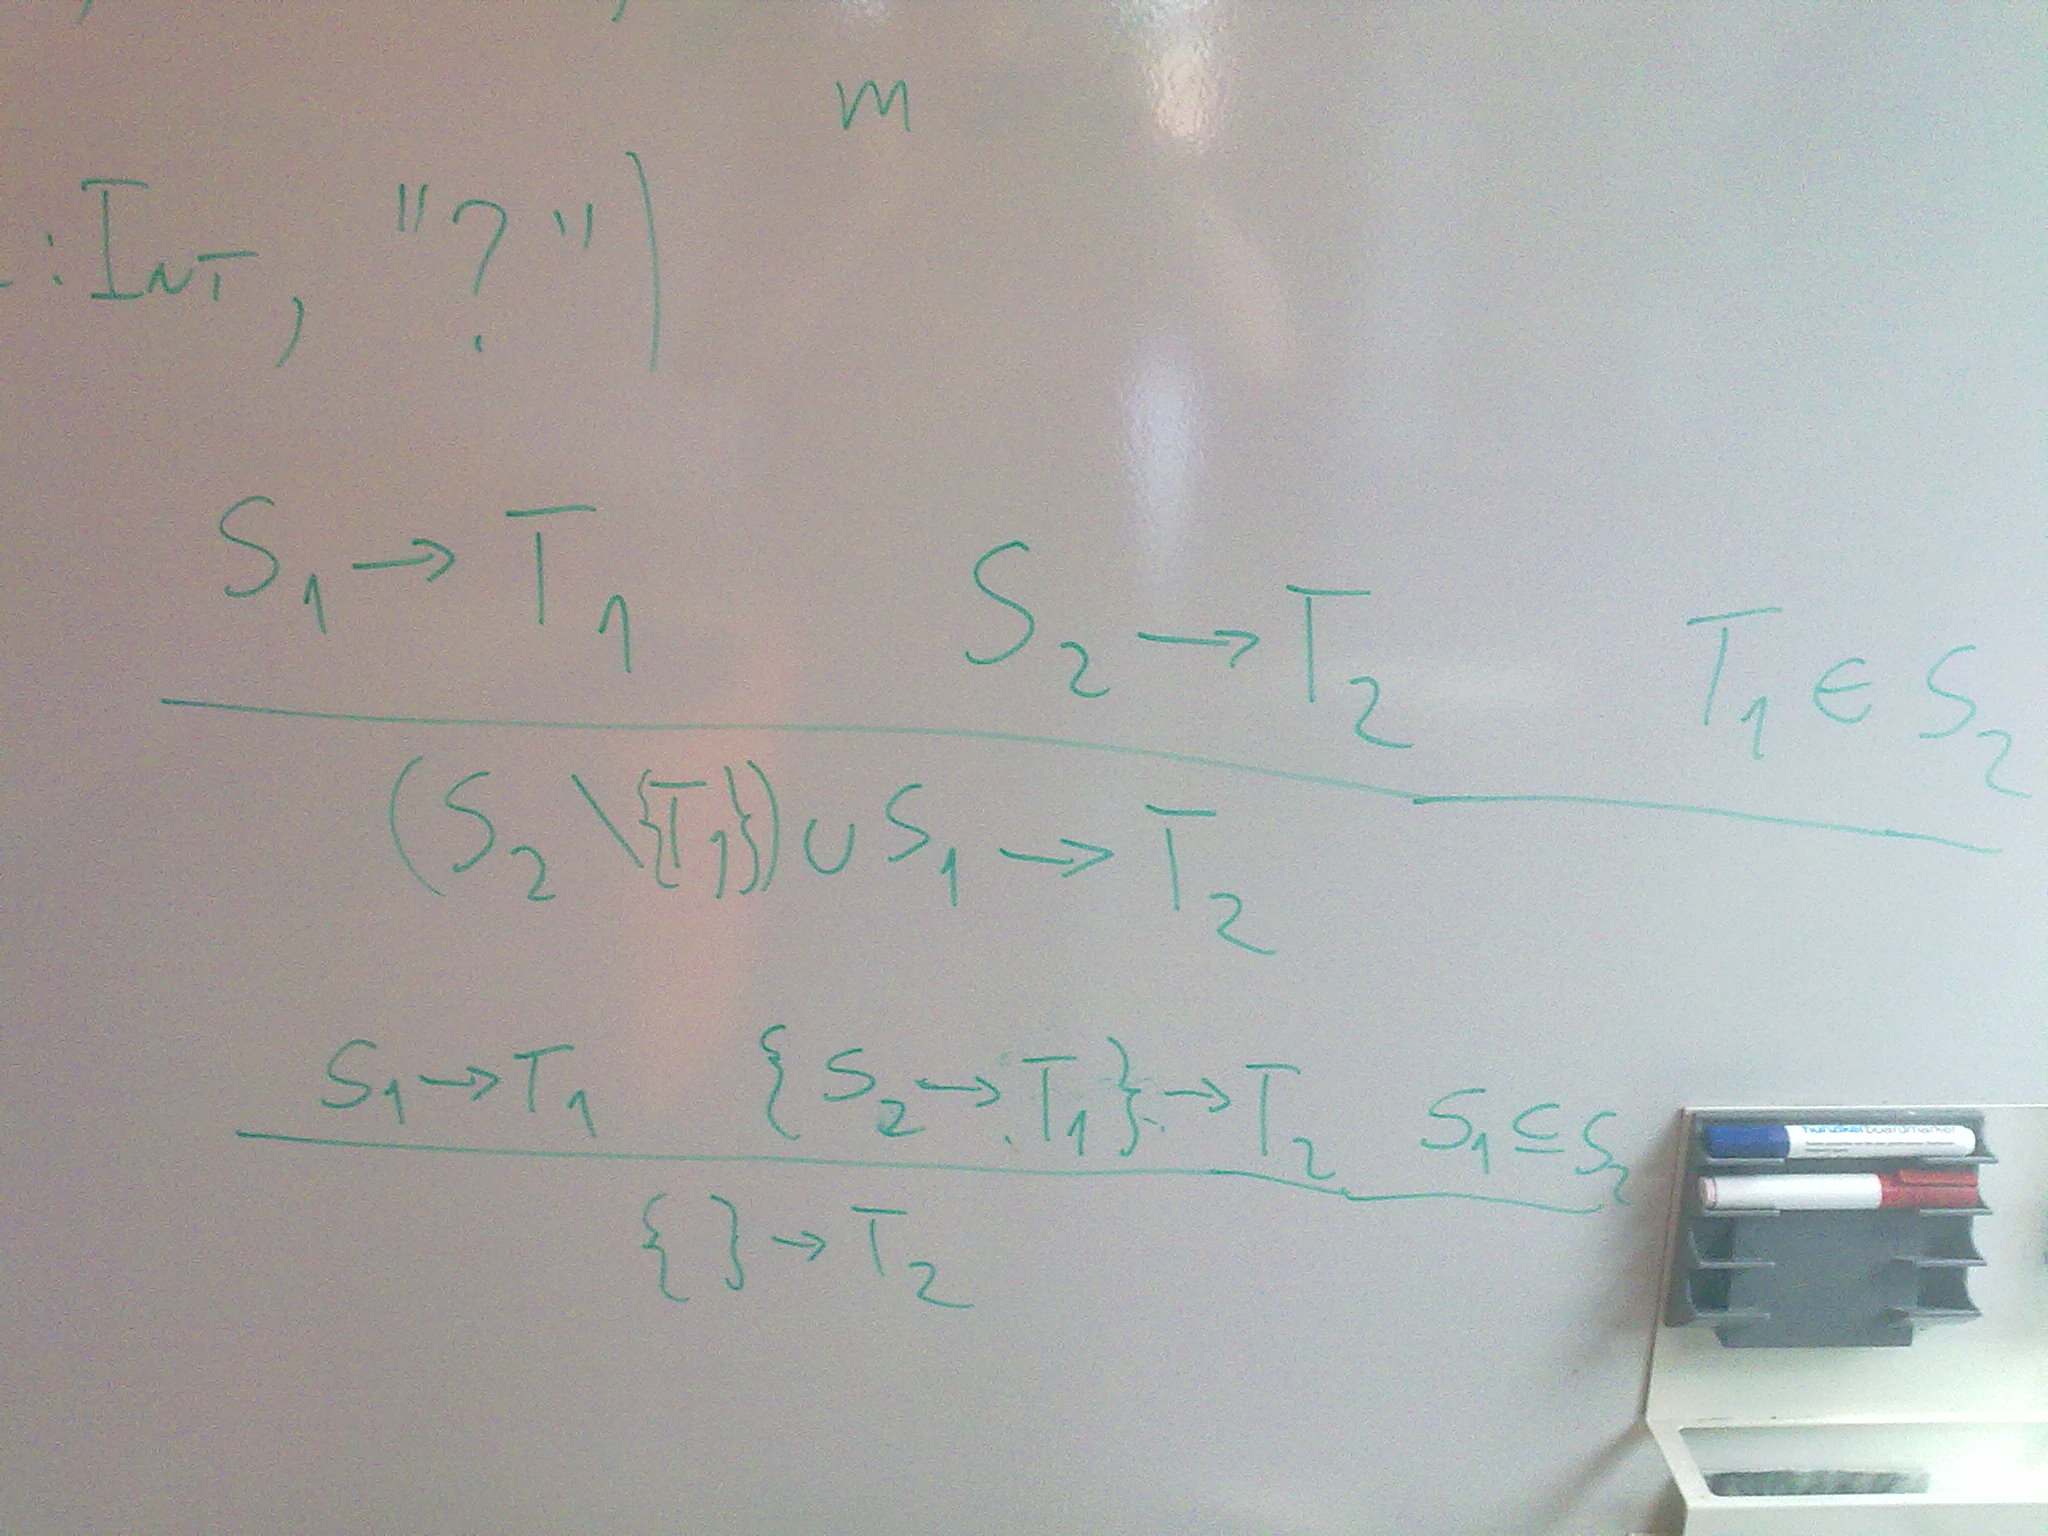 m
: INT, "?")
S₁ → T₁ S₂ → T₂ T₁ ∈ S₂
(S₂ \ {T₁}) ∪ S₁ → T₂
S₁ → T₁ {S₂ → T₁} → T₂ S₁ ⊆ S₂
{ } → T₂
boardmarker